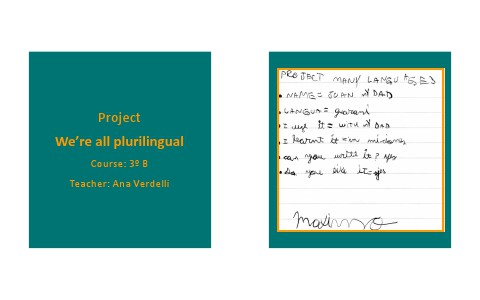 Project
We're all plurilingual
Course: 3º B
Teacher: Ana Verdelli
PROJECT MANY LANGUAGES
• NAME = JUAN DAD
• LANGUA = guarani
• I use it = WITH DAD
• I learnt it = in misiones
• can you write it? yes
• Do you like it = yes
Maximo